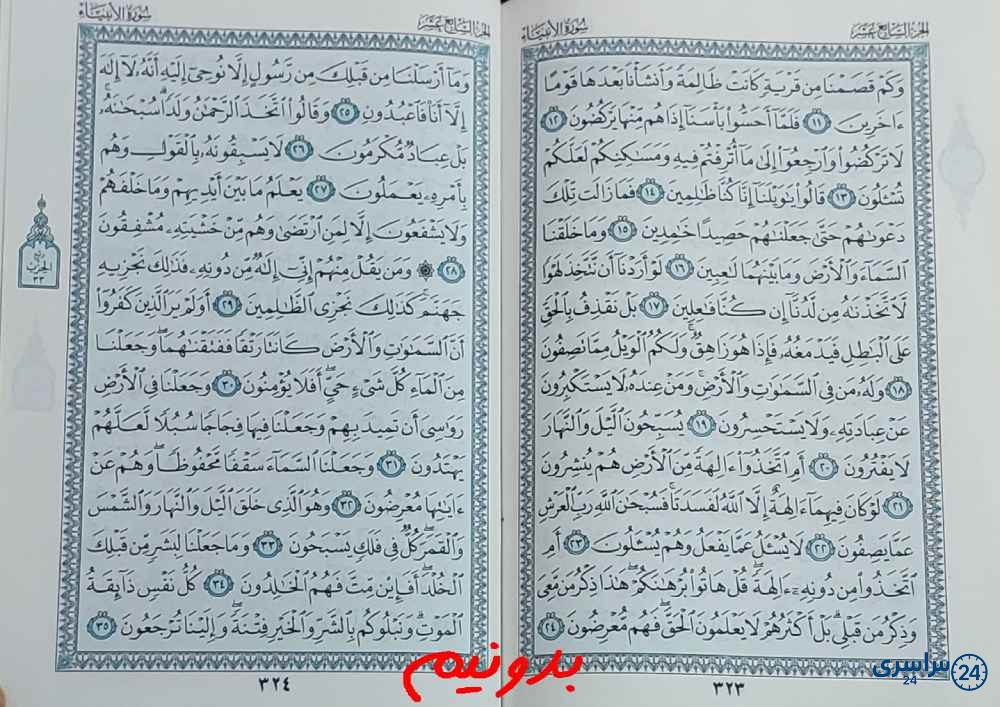 الجزء السابع عشر
سورة الأنبياء
وَكَمْ قَصَمْنَا مِن قَرْيَةٍ كَانَتْ ظَالِمَةً وَأَنشَأْنَا بَعْدَهَا قَوْمًا
ءَاخَرِينَ ١١ فَلَمَّآ أَحَسُّوا۟ بَأْسَنَآ إِذَا هُم مِّنْهَا يَرْكُضُونَ ١٢
لَا تَرْكُضُوا۟ وَٱرْجِعُوٓا۟ إِلَىٰ مَآ أُتْرِفْتُمْ فِيهِ وَمَسَـٰكِنِكُمْ لَعَلَّكُمْ
تُسْـَٔلُونَ ١٣ قَالُوا۟ يَـٰوَيْلَنَآ إِنَّا كُنَّا ظَـٰلِمِينَ ١٤ فَمَا زَالَت تِّلْكَ
دَعْوَىٰهُمْ حَتَّىٰ جَعَلْنَـٰهُمْ حَصِيدًا خَـٰمِدِينَ ١٥ وَمَا خَلَقْنَا
ٱلسَّمَآءَ وَٱلْأَرْضَ وَمَا بَيْنَهُمَا لَـٰعِبِينَ ١٦ لَوْ أَرَدْنَآ أَن نَّتَّخِذَ لَهْوًا
لَّٱتَّخَذْنَـٰهُ مِن لَّدُنَّآ إِن كُنَّا فَـٰعِلِينَ ١٧ بَلْ نَقْذِفُ بِٱلْحَقِّ
عَلَى ٱلْبَـٰطِلِ فَيَدْمَغُهُۥ فَإِذَا هُوَ زَاهِقٌ ۚ وَلَكُمُ ٱلْوَيْلُ مِمَّا تَصِفُونَ
١٨ وَلَهُۥ مَن فِى ٱلسَّمَـٰوَٰتِ وَٱلْأَرْضِ ۚ وَمَنْ عِندَهُۥ لَا يَسْتَكْبِرُونَ
عَنْ عِبَادَتِهِۦ وَلَا يَسْتَحْسِرُونَ ١٩ يُسَبِّحُونَ ٱلَّيْلَ وَٱلنَّهَارَ
لَا يَفْتُرُونَ ٢٠ أَمِ ٱتَّخَذُوٓا۟ ءَالِهَةً مِّنَ ٱلْأَرْضِ هُمْ يُنشِرُونَ
٢١ لَوْ كَانَ فِيهِمَآ ءَالِهَةٌ إِلَّا ٱللَّهُ لَفَسَدَتَا ۚ فَسُبْحَـٰنَ ٱللَّهِ رَبِّ ٱلْعَرْشِ
عَمَّا يَصِفُونَ ٢٢ لَا يُسْـَٔلُ عَمَّا يَفْعَلُ وَهُمْ يُسْـَٔلُونَ ٢٣ أَمِ
ٱتَّخَذُوا۟ مِن دُونِهِۦٓ ءَالِهَةً ۖ قُلْ هَاتُوا۟ بُرْهَـٰنَكُمْ ۖ هَـٰذَا ذِكْرُ مَن مَّعِىَ
وَذِكْرُ مَن قَبْلِى ۗ بَلْ أَكْثَرُهُمْ لَا يَعْلَمُونَ ٱلْحَقَّ ۖ فَهُم مُّعْرِضُونَ ٢٤
٣٢٣
الجزء السابع عشر
سورة الأنبياء
وَمَآ أَرْسَلْنَا مِن قَبْلِكَ مِن رَّسُولٍ إِلَّا نُوحِىٓ إِلَيْهِ أَنَّهُۥ لَآ إِلَـٰهَ
إِلَّآ أَنَا۠ فَٱعْبُدُونِ ٢٥ وَقَالُوا۟ ٱتَّخَذَ ٱلرَّحْمَـٰنُ وَلَدًا ۗ سُبْحَـٰنَهُۥ ۚ
بَلْ عِبَادٌ مُّكْرَمُونَ ٢٦ لَا يَسْبِقُونَهُۥ بِٱلْقَوْلِ وَهُم
بِأَمْرِهِۦ يَعْمَلُونَ ٢٧ يَعْلَمُ مَا بَيْنَ أَيْدِيهِمْ وَمَا خَلْفَهُمْ
وَلَا يَشْفَعُونَ إِلَّا لِمَنِ ٱرْتَضَىٰ وَهُم مِّنْ خَشْيَتِهِۦ مُشْفِقُونَ
٢٨ ۞ وَمَن يَقُلْ مِنْهُمْ إِنِّىٓ إِلَـٰهٌ مِّن دُونِهِۦ فَذَٰلِكَ نَجْزِيهِ
جَهَنَّمَ ۚ كَذَٰلِكَ نَجْزِى ٱلظَّـٰلِمِينَ ٢٩ أَوَلَمْ يَرَ ٱلَّذِينَ كَفَرُوٓا۟
أَنَّ ٱلسَّمَـٰوَٰتِ وَٱلْأَرْضَ كَانَتَا رَتْقًا فَفَتَقْنَـٰهُمَا ۖ وَجَعَلْنَا
مِنَ ٱلْمَآءِ كُلَّ شَىْءٍ حَىٍّ ۖ أَفَلَا يُؤْمِنُونَ ٣٠ وَجَعَلْنَا فِى ٱلْأَرْضِ
رَوَٰسِىَ أَن تَمِيدَ بِهِمْ وَجَعَلْنَا فِيهَا فِجَاجًا سُبُلًا لَّعَلَّهُمْ
يَهْتَدُونَ ٣١ وَجَعَلْنَا ٱلسَّمَآءَ سَقْفًا مَّحْفُوظًا ۖ وَهُمْ عَنْ
ءَايَـٰتِهَا مُعْرِضُونَ ٣٢ وَهُوَ ٱلَّذِى خَلَقَ ٱلَّيْلَ وَٱلنَّهَارَ وَٱلشَّمْسَ
وَٱلْقَمَرَ ۖ كُلٌّ فِى فَلَكٍ يَسْبَحُونَ ٣٣ وَمَا جَعَلْنَا لِبَشَرٍ مِّن قَبْلِكَ
ٱلْخُلْدَ ۖ أَفَإِي۟ن مِّتَّ فَهُمُ ٱلْخَـٰلِدُونَ ٣٤ كُلُّ نَفْسٍ ذَآئِقَةُ
ٱلْمَوْتِ ۗ وَنَبْلُوكُم بِٱلشَّرِّ وَٱلْخَيْرِ فِتْنَةً ۖ وَإِلَيْنَا تُرْجَعُونَ ٣٥
٣٢٤
ربع
الحزب
٣٣
بدونیم
سراسری
24
24